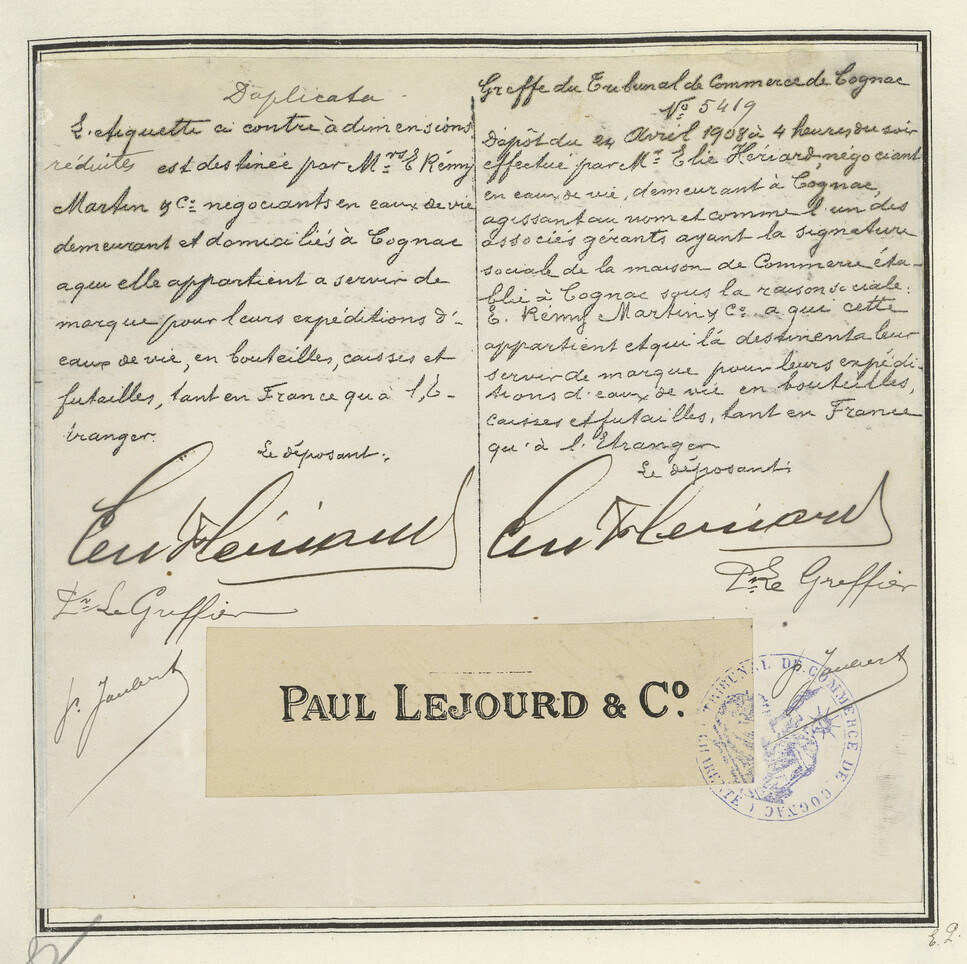 Duplicata
L'étiquette ci contre à dimensions
réduites est destinée par Mrs E. Rémy
Martin & Cie négociants en eaux de vie
demeurant et domiciliés à Cognac
a qui elle appartient a servir de
marque pour leurs expéditions d'-
eaux de vie, en bouteilles, caisses et
futailles, tant en France qu'à l'É-
tranger.
Le déposant:
Pr Le Greffier
p. Jaubert
Greffe du Tribunal de Commerce de Cognac
No 5419
Dépôt du 24 Avril 1908 à 4 heures du soir
effectué par Mr Elie Hériard, négociant
en eaux de vie, demeurant à Cognac,
agissant au nom et comme l'un des
associés gérants ayant la signature
sociale de la maison de Commerce éta-
blie à Cognac sous la raison sociale:
E. Rémy Martin & Co. a qui cette
appartient et qui la destinent a leur
servir de marque pour leurs expédi-
tions d'eaux de vie en bouteilles,
caisses et futailles, tant en France
qu'à l'Etranger
Le déposant:
Pr Le Greffier
p. Jaubert
PAUL LEJOURD & Co.
TRIBUNAL DE COMMERCE DE COGNAC (CHARENTE)